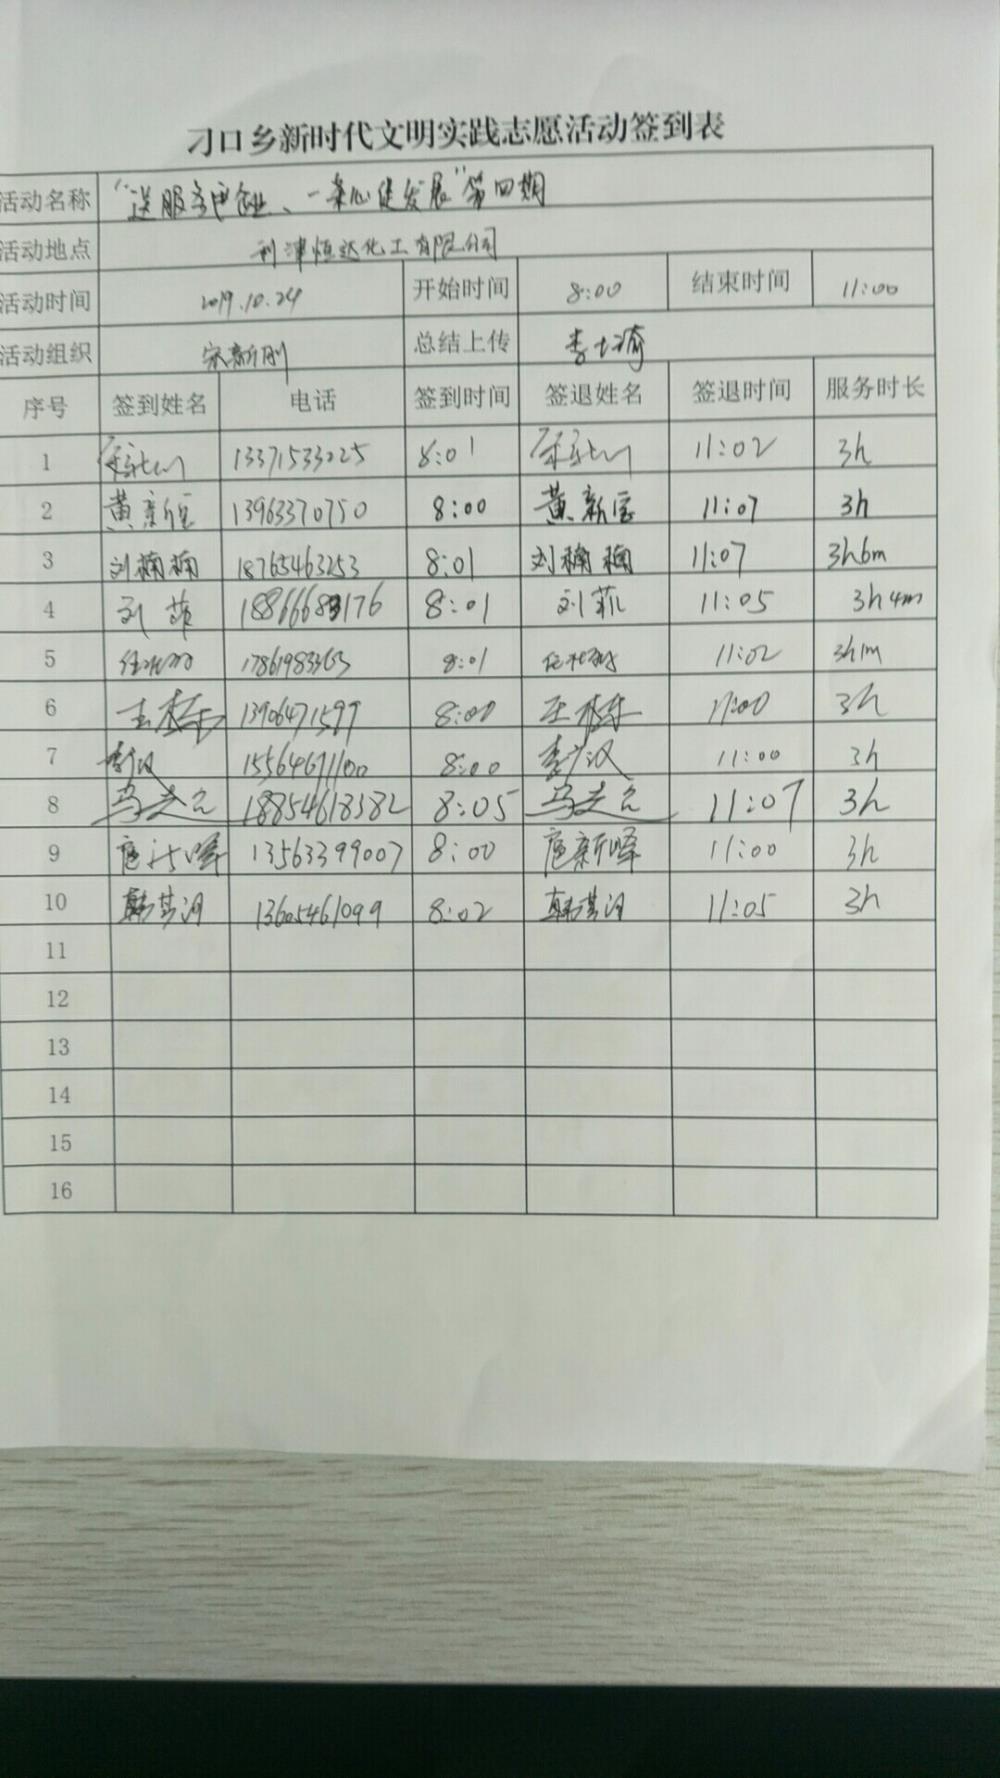 刁口乡新时代文明实践志愿活动签到表
活动名称 "送服务进企业、一条心促发展"第四期
活动地点 利津恒达化工有限公司
活动时间 2019.10.24 开始时间 8:00 结束时间 11:00
活动组织 宋新刚 总结上传 李
序号 签到姓名 电话 签到时间 签退姓名 签退时间 服务时长
1 13371533025 8:01 11:02 3h
2 黄新宝 13963370750 8:00 黄新宝 11:07 3h
3 刘楠楠 18765463253 8:01 刘楠楠 11:07 3h6m
4 刘菲 8:01 刘菲 11:05 3h4m
5 17861983363 8:01 11:02 3h1m
6 13906471597 8:00 11:00 3h
7 李汉 8:00 李汉 11:00 3h
8 18854618382 8:05 11:07 3h
9 扈新峰 13563399007 8:00 扈新峰 11:00 3h
10 韩其河 13605461099 8:02 韩其河 11:05 3h
11
12
13
14
15
16